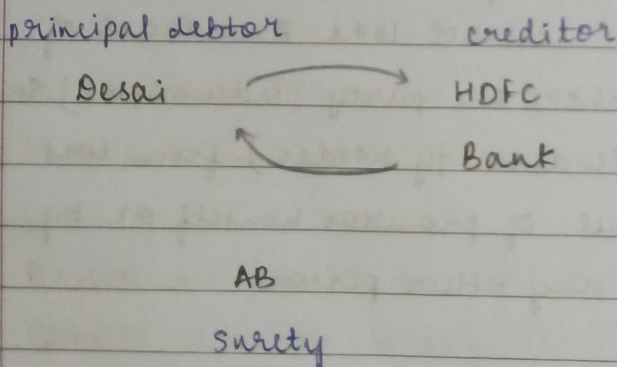 principal debtor creditor
Desai HDFC
Bank
AB
Surety